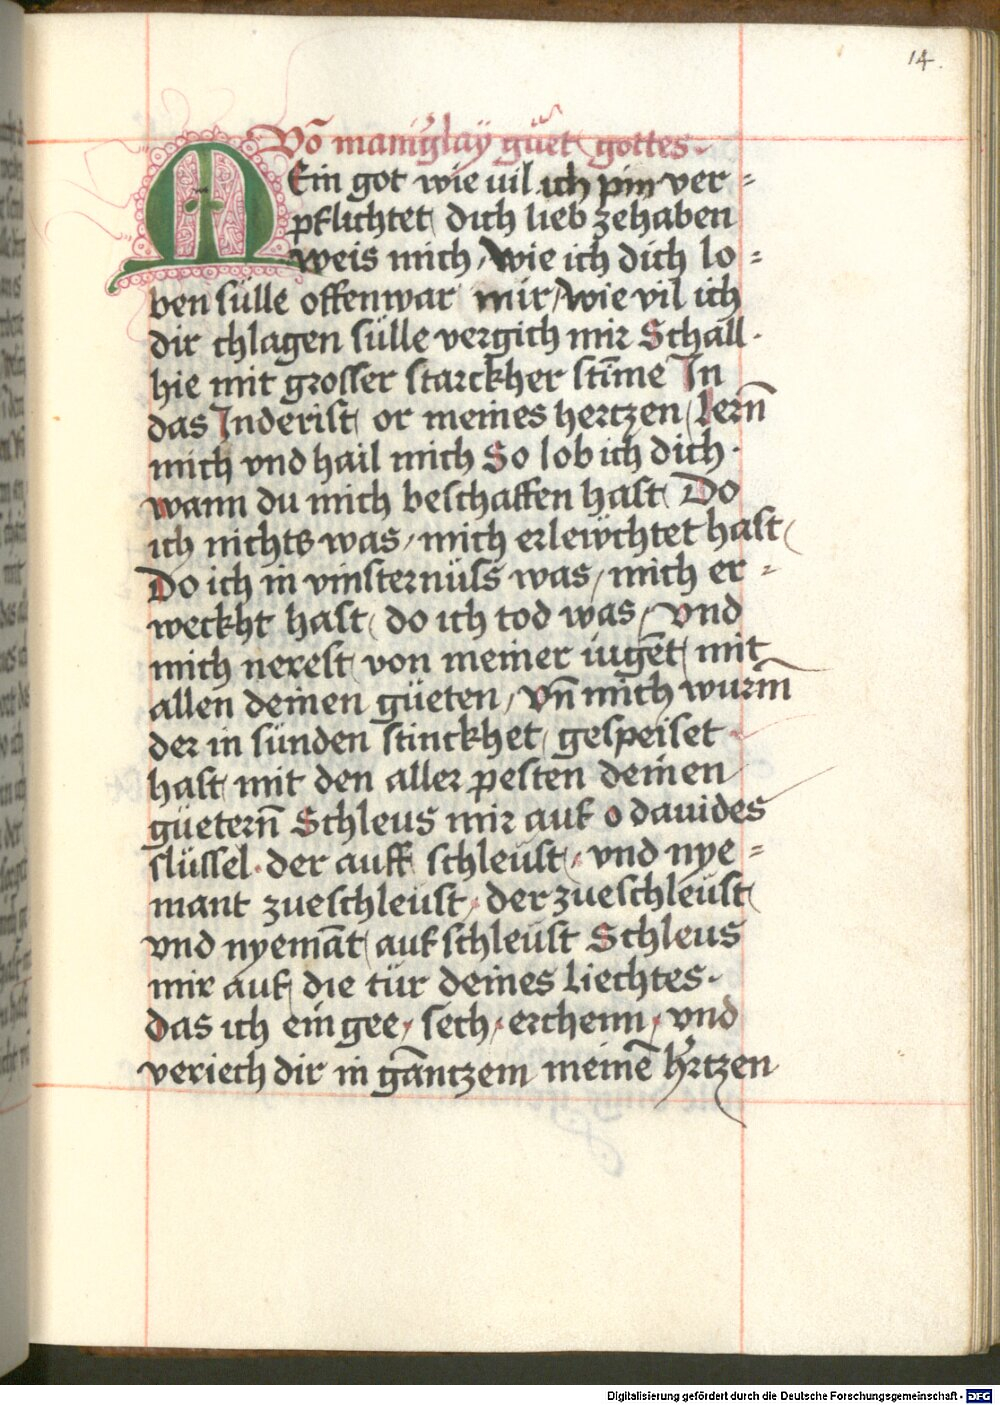 14.
Võ maniglaÿ güet gottes.
MEin got wie uil ich pin ver=
pflichtet dich lieb zehaben
weis mich, wie ich dich lo=
ben sülle offenwar mir, wie vil ich
dir chlagen sülle vergich mir Schall.
hie mit grosser starckher stim̄e In
das Inderist or meines hertzen Lern̄
mich vnd hail mich So lob ich dich.
wann du mich beschaffen hast Do
ich nichts was, mich erlewchtet hast
Do ich in vinsternüss was, mich er=
weckht hast, do ich tod was, vnd
mich nerest von meiner iugēt mit
allen deinen güeten, vn̄ mich wurm̄
der in sünden stinckhet, gespeiset
hast mit den aller pesten deinen
güetern̄ Schleus mir auf o dauides
slüssel. der auff schleust, vnd nye=
mant zueschleust, der zueschleust
vnd nyemāt, auf schleust Schleus
mir auf, die tür deines Liechtes.
das ich ein gee, sech, erchenn, vnd
veriech dir in gāntzem meinē hertzen
Digitalisierung gefördert durch die Deutsche Forschungsgemeinschaft - DFG